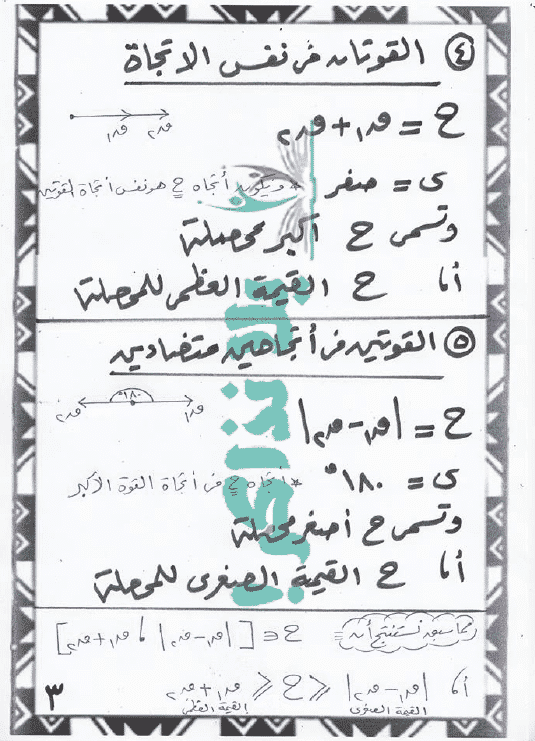 ٤ القوتان فى نفس الاتجاة
ح = ق١ + ق٢
ق١ ق٢
ى = صفر * ويكون أتجاه ح هو نفس أتجاة القوتين
وتسمى ح أكبر محصلة
أ،ا ح القيمة العظمى للمحصلة
٥ القوتين فى أتجاهين متضادين
ح = |ق١ - ق٢|
ق٢ °١٨٠ ق١
ى = °١٨٠ * أتجاه ح فى أتجاة القوة الأكبر
وتسمى ح أصغر محصلة
أ،ا ح القيمة الصغرى للمحصلة
مما سبق نستنتج أن ح ∈ [|ق١ - ق٢| ، ق١ + ق٢]
أ،ا |ق١ - ق٢| ≤ ح ≤ ق١ + ق٢
القيمة الصغرى القيمة العظمى
٣